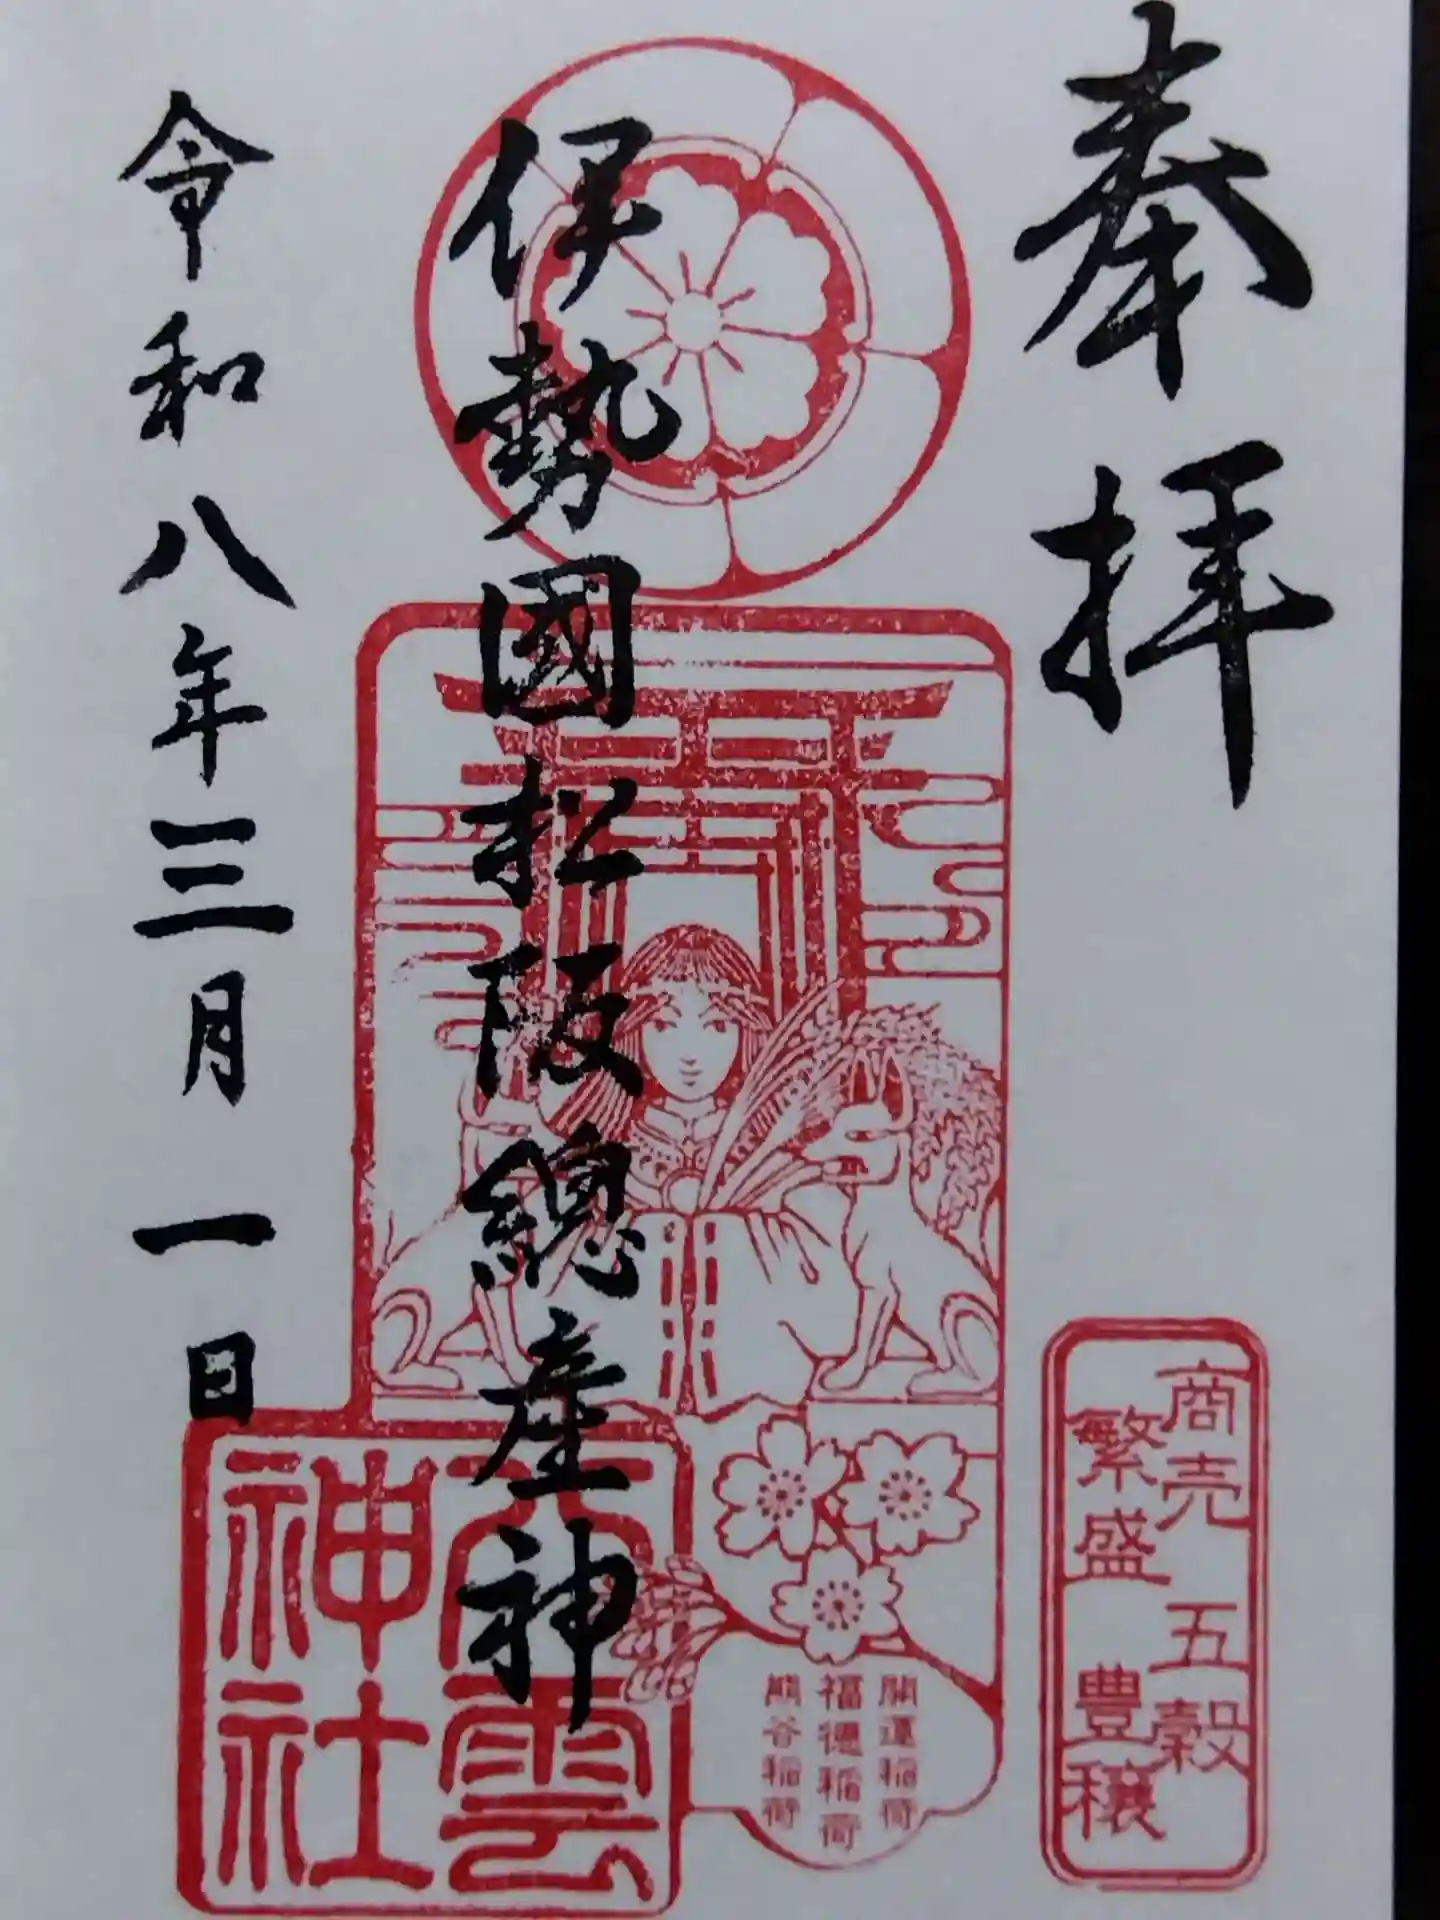 奉拝
商売繁盛
五穀豊穣
伊勢國松阪總産神
開運稲荷
福徳稲荷
熊谷稲荷
八雲
神社
令和八年三月一日